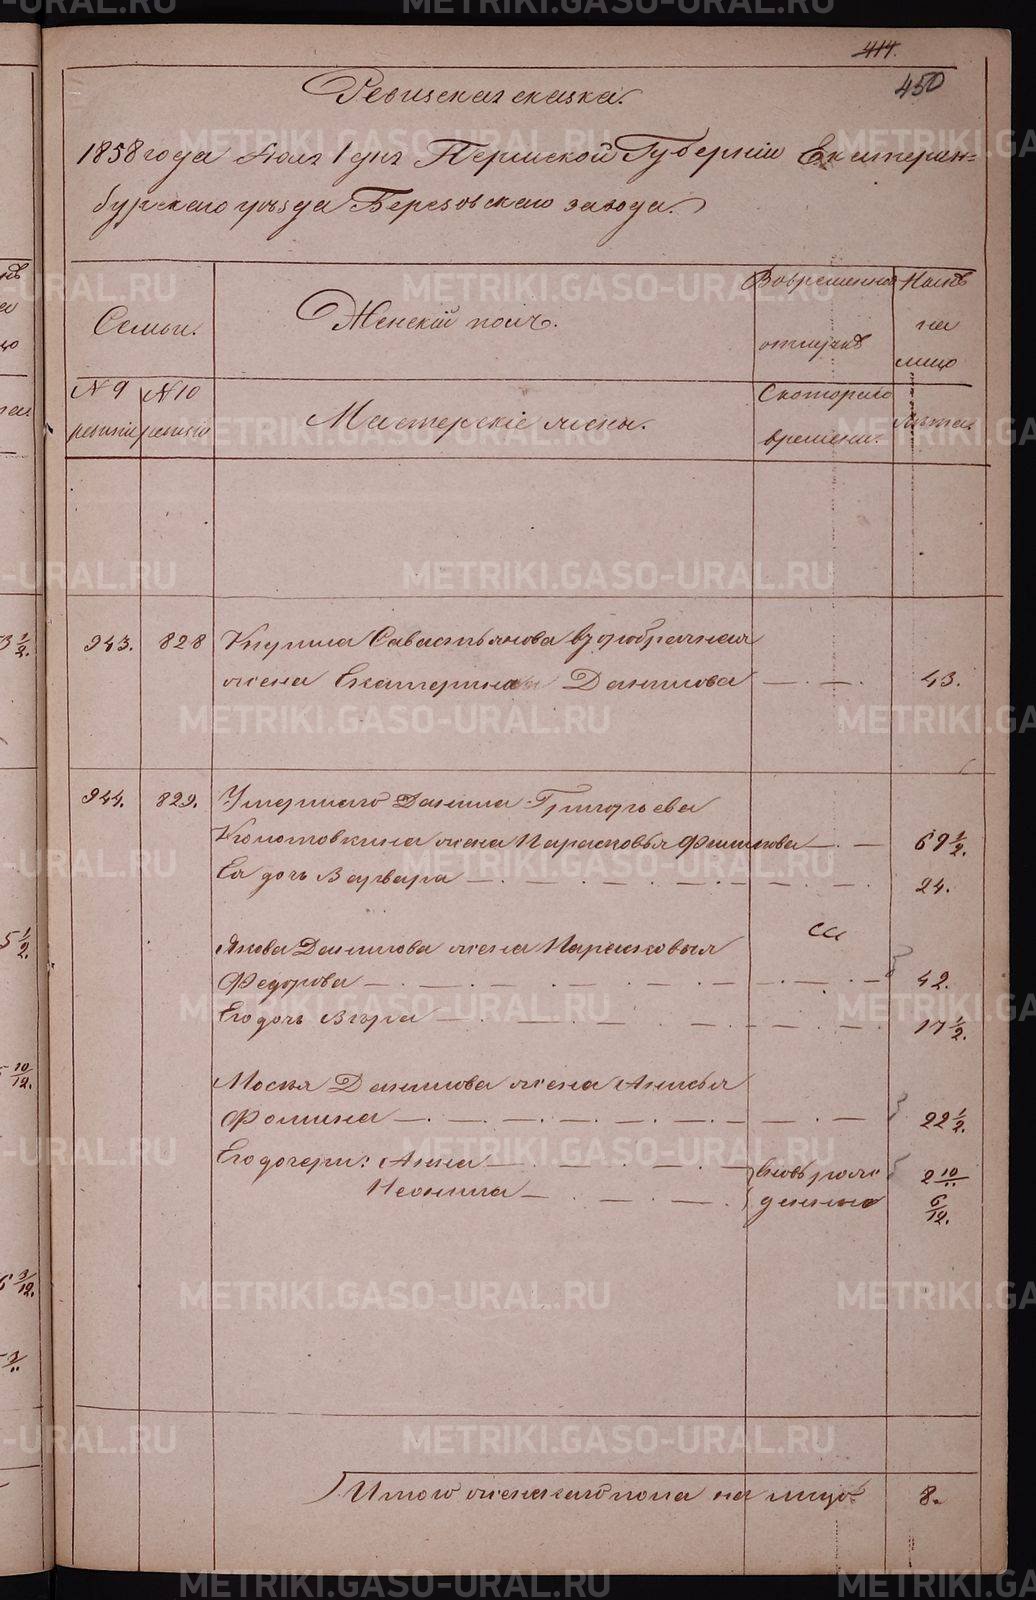 414.
450
Ревизская сказка.
1858 года Июля 1 дня Пермской Губернии Екатерин=
бургскаго уезда Березовскаго завода.
Семьи.
Женскій полъ.
Вовременной
отлучкѣ
Нынѣ
на
лицо
№ 9
ревизіи
№ 10
ревизіи
Мастерскіе жены.
Скотораго
времени.
Лѣта.
943.
828
Савастьянова
жена Екатерина Данилова — . — .
43.
944.
829.
Умершаго Данила Григорьева
Колотовкина жена Парасковья Филипова — . —
69 1/2.
Ея дочь Варвара — . — . — . —
24.
Якова Данилова жена Парасковья
Федорова — . — . — . —
42.
Его дочь Вѣра — . — . — . —
17 1/2.
Мосѣя Данилова жена Анисья
Фомина — . — . — . —
22 1/2.
Его дочери: Анна — . — . —
вновь рож
2 10/11
Неонила — . — . — .
денные
6/12.
Итого женскаго пола на лицо
8.
METRIKI.GASO-URAL.RU